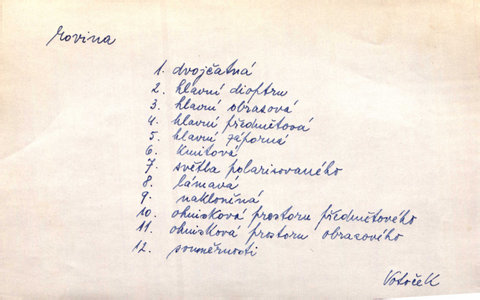 rovina
1. dvojčatná
2. hlavní dioptru
3. hlavní obrazová
4. hlavní předmětová
5. hlavní záporná
6. kmitová
7. světla polarisovaného
8. lámavá
9. nakloněná
10. ohnisková prostoru předmětového
11. ohnisková prostoru obrazového
12. souměrnosti
Votoček